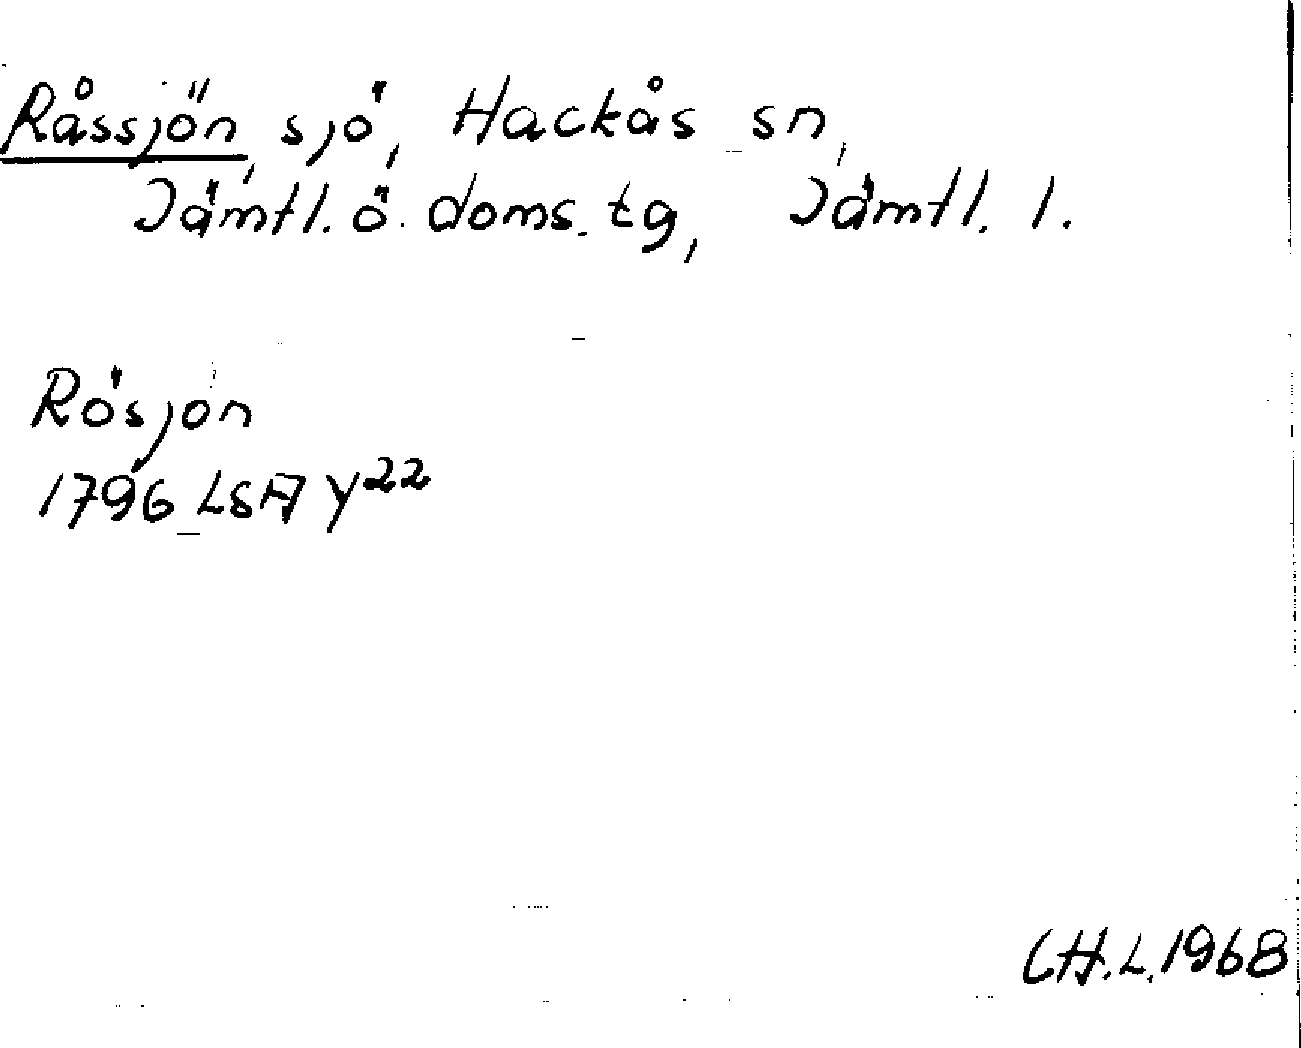 Råssjön, sjö, Hackås sn,
Jämtl. ö. doms. tg, Jämtl. l.
Rösjön
1796 LSA Y²²
C.H.L. 1968